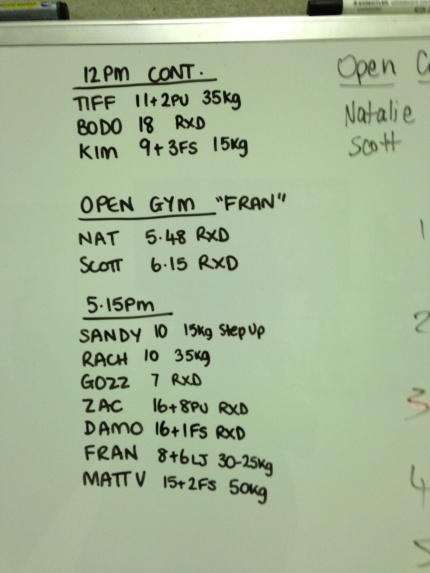 12PM CONT.
TIFF 11+2PU 35kg
BODO 18 RXD
KIM 9+3FS 15kg
OPEN GYM "FRAN"
NAT 5.48 RXD
SCOTT 6.15 RXD
5.15PM
SANDY 10 15kg Step Up
RACH 10 35kg
GOZZ 7 RXD
ZAC 16+8PU RXD
DAMO 16+1FS RXD
FRAN 8+6LJ 30-25kg
MATT V 15+2FS 50kg
Open
Natalie
Scott
1
2
3
4
5